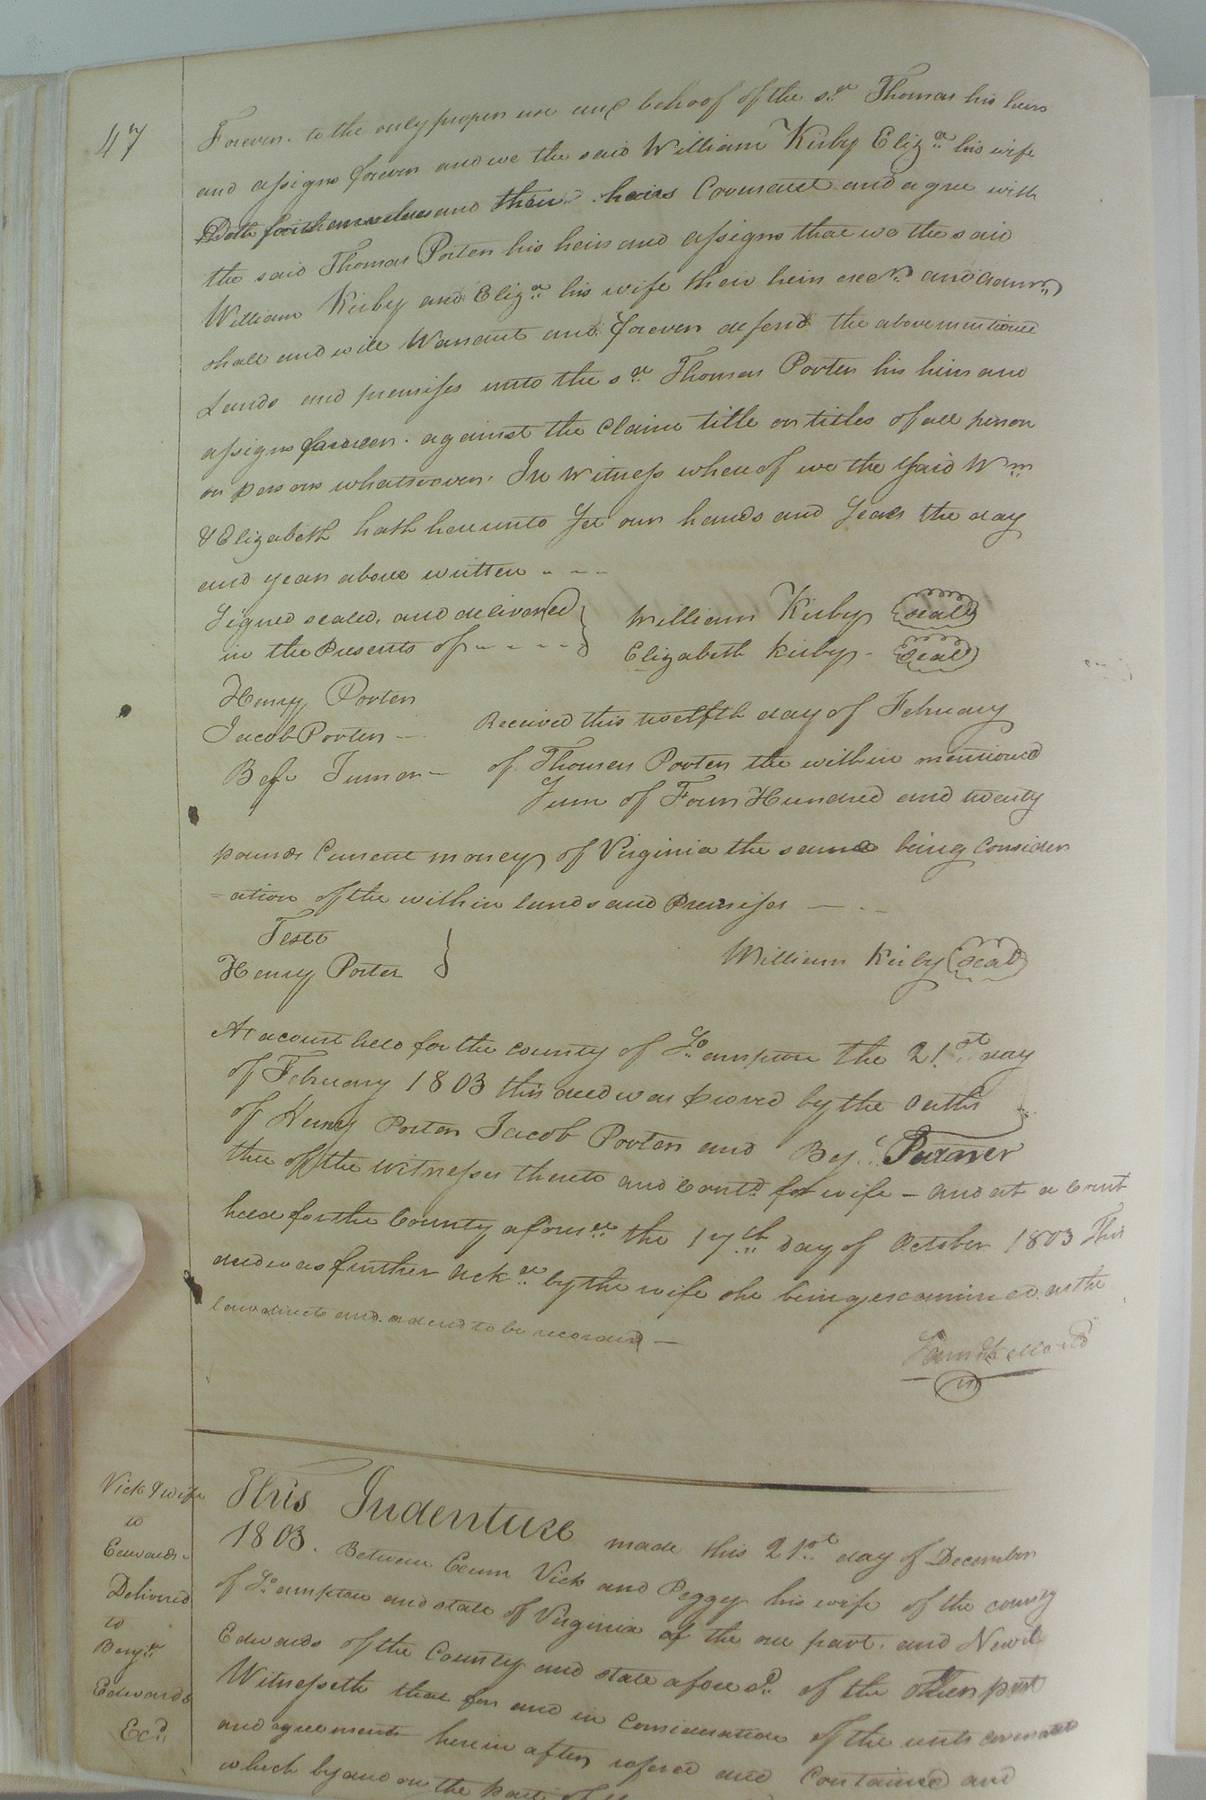 47
Forever. to the only proper use and behoof of the sd Thomas his heirs
and assigns forever and we the said William Kirby Eliza his wife
Doth for themselves and their heirs Covenant and agree with
the said Thomas Porter his heirs and assigns that we the said
William Kirby and Eliza his wife their heirs execrs and admrs
shall and will Warrant and forever defend the above mentioned
Lands and premises unto the sd Thomas Porter his heirs and
assigns forever. against the Claim title or titles of all person
or persons whatsoever. In Witness whereof we the said Wm
& Elizabeth hath hereunto Set our hands and Seals the day
and year above written
Signed sealed, and delivered } William Kirby (seal)
in the Presents of } Elizabeth Kirby (seal)
Henry Porter
Jacob Porter
Benj Turner
Received this twelfth day of February
of Thomas Porter the within mentioned
Sum of Four Hundred and twenty
pounds Current money of Virginia the same being Consider
=ation of the within lands and Premises
Teste
Henry Porter } William Kirby (seal)
At a court held for the county of So.ampton the 21st day
of February 1803 this deed was proved by the oaths
of Henry Porter Jacob Porter and Benj. Turner
three of the witnesses thereto and contd for wife - and at a Court
held for the County aforesd the 17th day of October 1803 This
deed was further Ackd by the wife she being examined as the
law directs and ordered to be recorded
Saml Kello
Vick & wife
to
Edwards
Delivered
to
Benjn
Edwards
Exd
This Indenture made this 21st day of December
1803. Between Exum Vick and Peggy his wife of the county
of So.ampton and state of Virginia of the one part. and Newit
Edwards of the County and state aforesd of the other part
Witnesseth that for and in Consideration of the rents covenants
and agreements herein after referred and Contained and
which by and on the part of